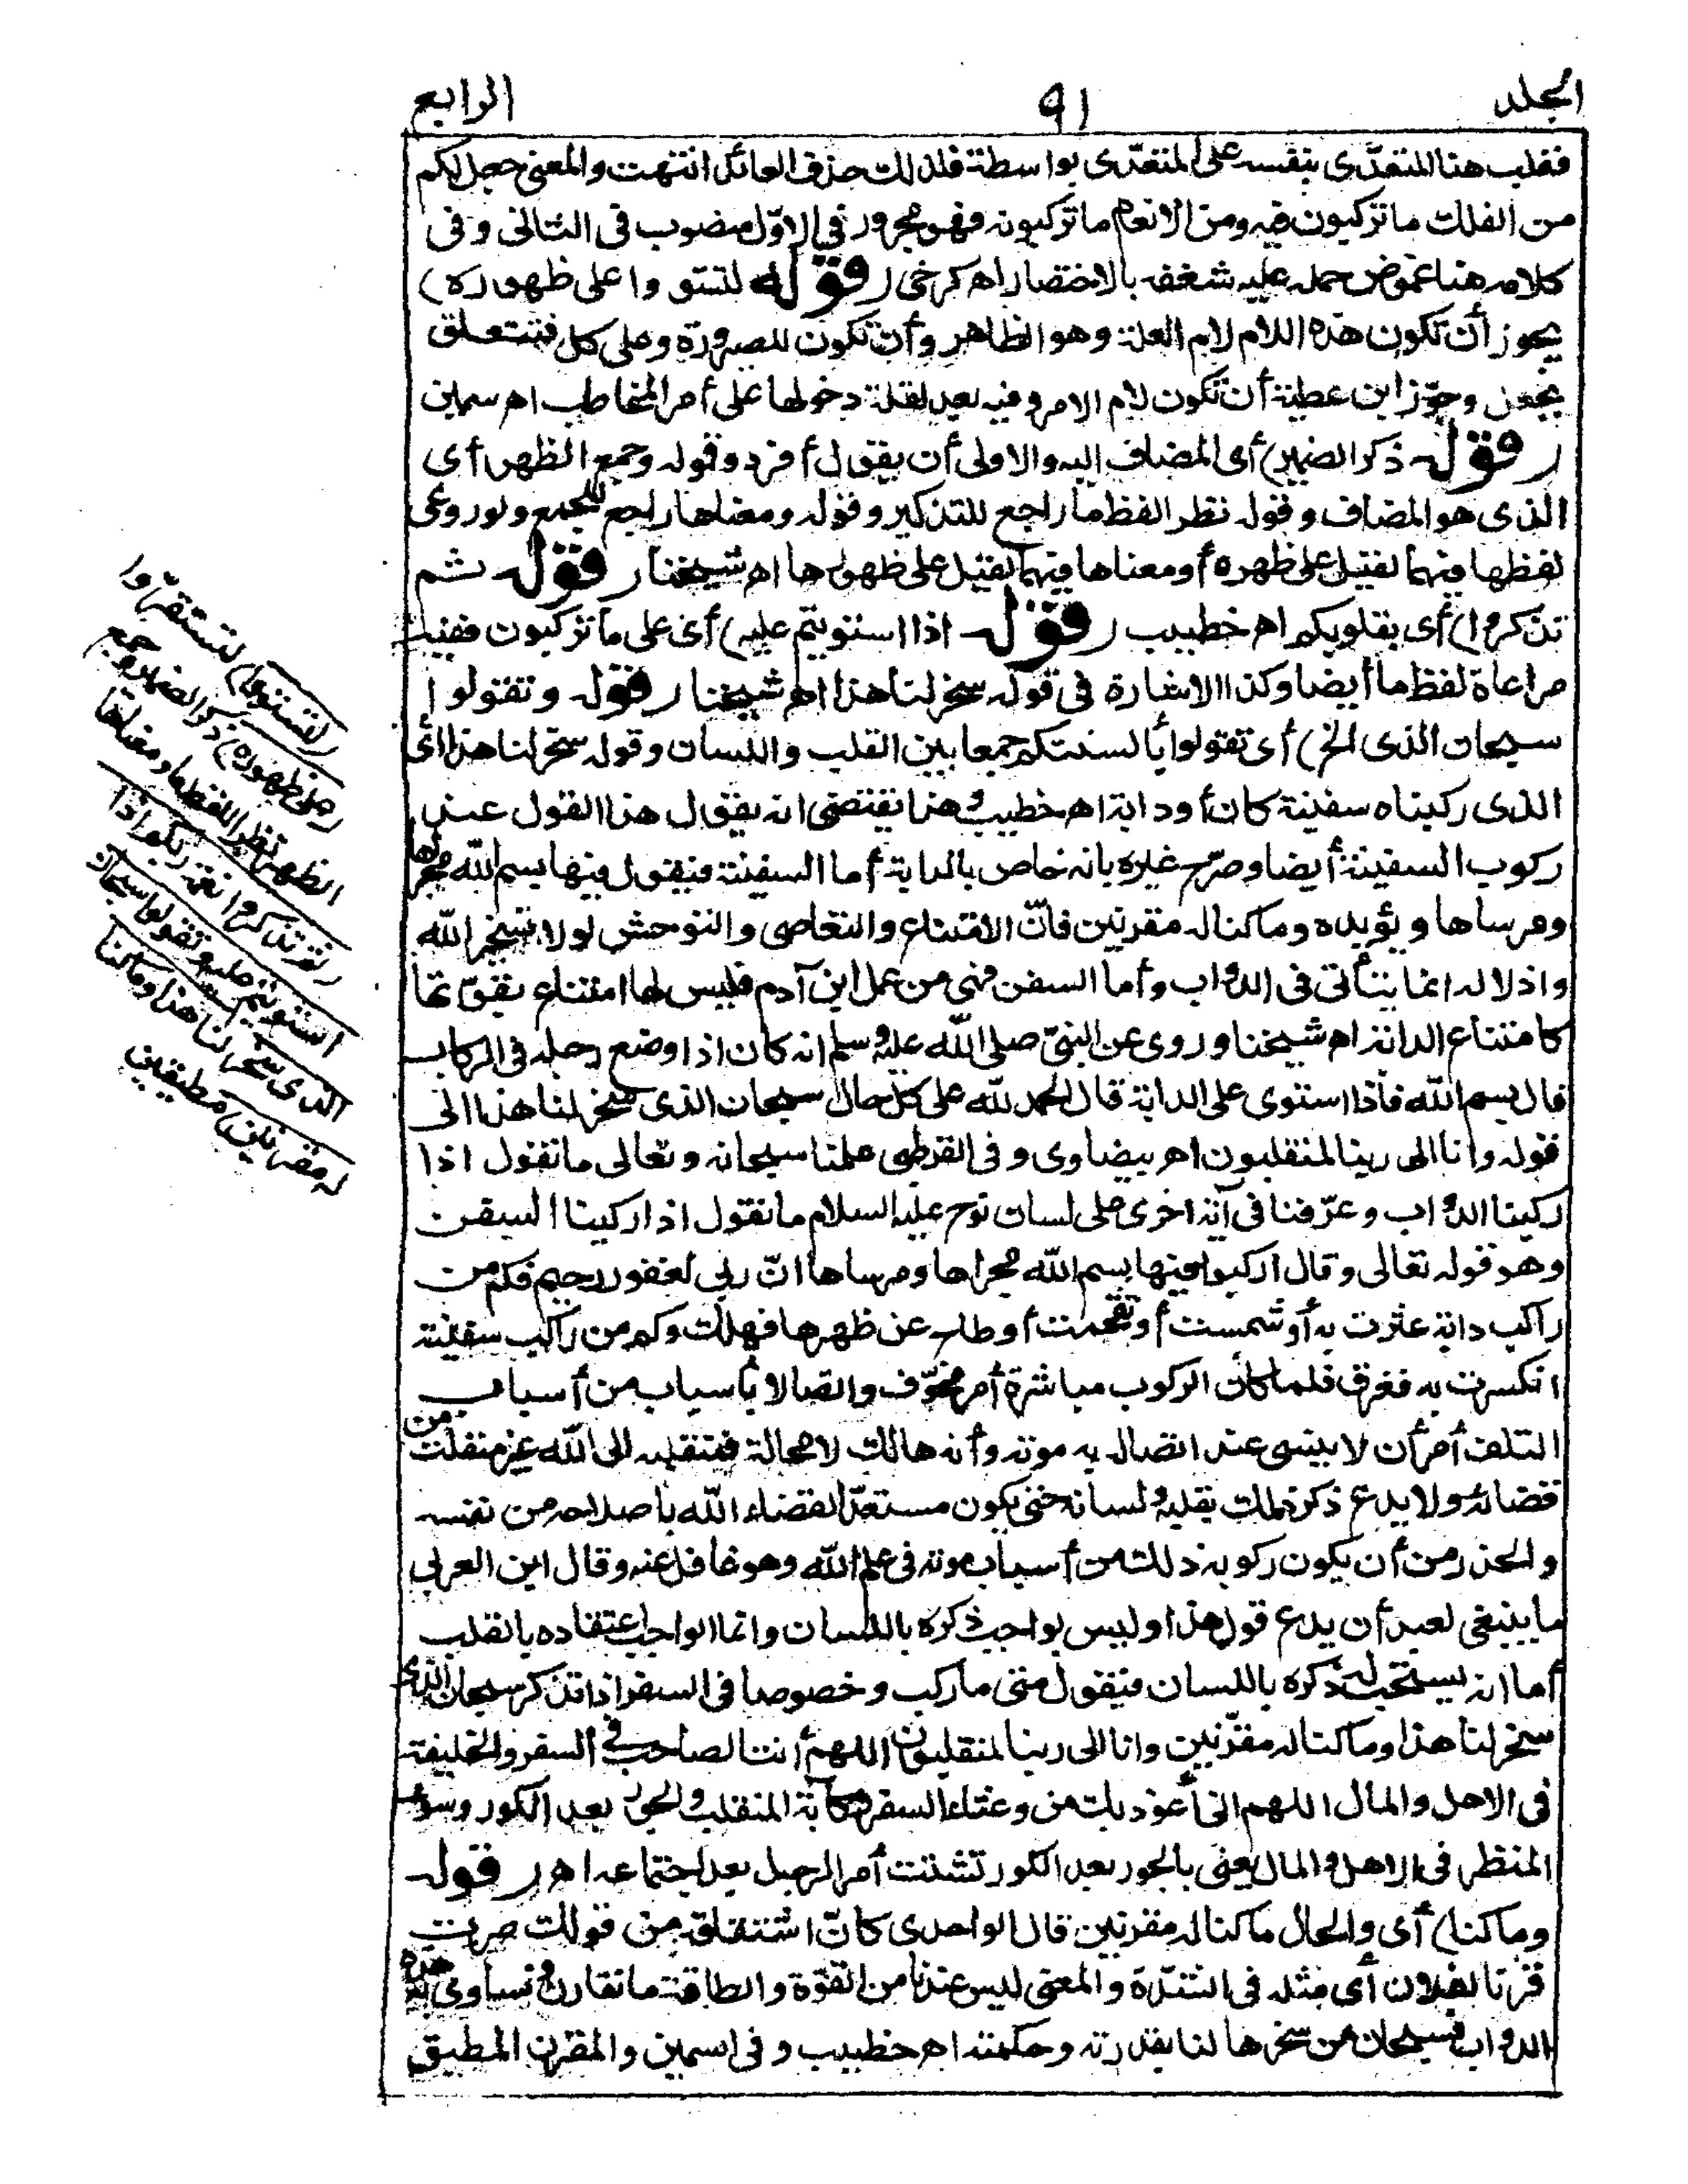 المجلد ٩١ الرابع
فغلب هنا المتعدّى بنفسه على المتعدّى بواسطة فلذلك حذف العائد انتهت والمعنى جعل لكم
من الفلك ما تركبون فيه ومن الانعام ما تركبونه فهو مجرور فى الاوّل منصوب فى الثانى وفى
كلامه هنا غموض حمله عليه شغفه بالاختصار اهـ كرخى (قوله لتستووا على ظهوره)
يجوز أن تكون هذه اللام لام العلة وهو الظاهر وأن تكون للصيرورة وعلى كل فتتعلق
بجعل وجوّز ابن عطية أن تكون لام الامر وفيه بعد لقلة دخولها على أمر المخاطب اهـ سمين
(قوله ذكر الضمير) أى المضاف اليه والاولى أن يقول أفرد وقوله وجمع الظهر أى
الذى هو المضاف وقوله نظر اللفظ ما راجع للتذكير وقوله ومعناها راجع للجمع ولو روعى
لفظها فيهما لقيل على ظهره أو معناها فيهما لقيل على ظهورها اهـ شيخنا (قوله ثم
تذكروا) أى بقلوبكم اهـ خطيب (قوله اذا استويتم عليه) أى على ما تركبون ففيه
مراعاة لفظ ما أيضا وكذا الاشارة فى قوله سخر لنا هذا اهـ شيخنا (قوله وتقولوا
سبحان الذى الخ) أى تقولوا بألسنتكم جمعا بين القلب واللسان وقوله سخر لنا هذا أى
الذى ركبناه سفينة كان أو دابة اهـ خطيب وهذا يقتضى انه يقول هذا القول عند
ركوب السفينة أيضا وصرّح غيره بانه خاص بالدابة أما السفينة فيقول فيها بسم الله مجراها
ومرساها ويؤيده وما كنا له مقرنين فانّ الامتناع والتعاصى والتوحش لولا تسخير الله
واذلاله انما يتأتى فى الدواب وأما السفن فهى من عمل ابن آدم فليس لها امتناع بقوّتها
كامتناع الدابة اهـ شيخنا وروى عن النبىّ صلى الله عليه وسلم انه كان اذا وضع رجله فى الركاب
قال بسم الله فاذا استوى على الدابة قال الحمد لله على كل حال سبحان الذى سخر لنا هذا الى
قوله وانا الى ربنا لمنقلبون اهـ بيضاوى وفى القرطبى علمنا سبحانه وتعالى ما نقول اذا
ركبنا الدواب وعرّفنا فى آية اخرى على لسان نوح عليه السلام ما نقول اذا ركبنا السفن
وهو قوله تعالى وقال اركبوا فيها بسم الله مجراها ومرساها انّ ربى لغفور رحيم فكم من
راكب دابة عثرت به أو شمست أو تقحمت أو طاح عن ظهرها فهلك وكم من راكب سفينة
انكسرت به فغرق فلما كان الركوب مباشرة أمر مخوّف واتصالا بأسباب من أسباب
التلف أمر أن لا ينسى عند اتصاله به موته وأنه هالك لا محالة فمنقلب الى الله غير منفلت من
قضائه ولا يدع ذكر ذلك بقلبه ولسانه حتى يكون مستعدّا لقضاء الله باصلاحه من نفسه
والحذر من أن يكون ركوبه ذلك من أسباب موته فى علم الله وهو غافل عنه وقال ابن العربى
ما ينبغى لعبد أن يدع قول هذا وليس بواجب ذكره باللسان وانما الواجب اعتقاده بالقلب
أما انه يستحب له ذكره باللسان فيقول متى ما ركب وخصوصا فى السفر اذا تذكر سبحان الذى
سخر لنا هذا وما كنا له مقرّنين وانا الى ربنا لمنقلبون اللهم أنت الصاحب فى السفر والخليفة
فى الاهل والمال اللهم انى أعوذ بك من وعثاء السفر وكآبة المنقلب والحور بعد الكور وسوء
المنظر فى الاهل والمال يعنى بالحور بعد الكور تشتت أمر الرجل بعد اجتماعه اهـ (قوله
وما كنا) أى والحال ما كنا له مقرنين قال الواحدى كانّ اشتقاقه من قولك صرت
قرنا لفلان أى مثله فى الشدّة والمعنى ليس عندنا من القوّة والطاقة ما نقارن ونساوى به هذه
الدواب فسبحان من سخرها لنا بقدرته وحكمته اهـ خطيب وفى السمين والمقرن المطيق
(لتستووا) لتستقرّوا
(على ظهوره) ذكر الضمير وجمع
الظهر نظر اللفظ ما ومعناها
(ثم تذكروا نعمة ربكم اذا
استويتم عليه وتقولوا سبحان
الذى سخر لنا هذا وما كنا
له مقرنين) مطيقين